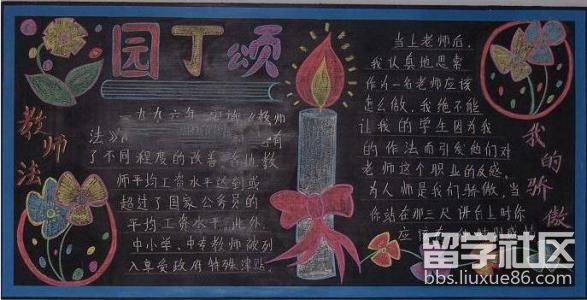 园丁颂
教师法
一九九六年 《教师
法》 有
了不同程度的改善 教
师平均工资水平达到或
超过了国家公务员的
平均工资水平。此外、
中小学、中专教师被列
入享受政府特殊津贴。
当上老师后,
我认真地思索
作为一名老师应该
怎么做,我绝不能
让我的学生因为我
的作法而引发他们对
老师这个职业的反感。
为人师是我们骄傲,当
你站在那三尺讲台上时你
应该
我的骄傲
留学社区
bbs.liuxue86.com